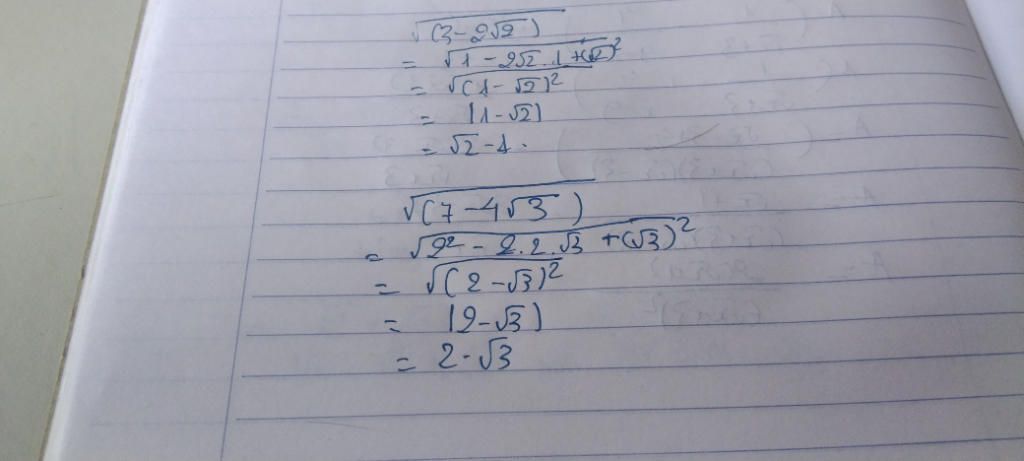 √(3-2√2)
= √1-2√2.1+(√2)²
= √(1-√2)²
= |1-√2|
= √2-1.
√(7-4√3)
= √2²-2.2.√3+(√3)²
= √(2-√3)²
= |2-√3|
= 2-√3